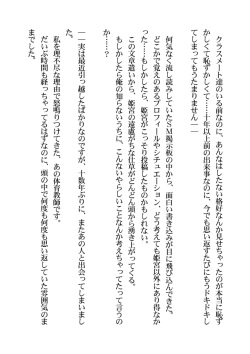 クラスメート達のいる前なのに、あんなはしたない格好なんか見せちゃったのが本当に恥ず
かしくて恥ずかしくて……十年以上前の出来事なのに、今でも思い返すたびにもうドキドキし
てしまってもうたまりません――
何気なく流し読みしていたＳＭ掲示板の中から、面白い書き込みが目に飛び込んできた。
どこかで覚えのあるプロフィールやシチュエーション、どう考えても姫宮以外にあり得なか
った……もしかしたら、姫宮がこっそり投稿したものかもしれない。
この文章遣いから、姫宮の遠慮がちな仕草がどんどん頭から湧き上がってくる。
もしかしたら俺の知らないうちに、こんないやらしいことなんか考えちゃってたって言うの
か……？
――実は最近引っ越したばかりなのですが、十数年ぶりに、またあの人と出会ってしまいまし
た。
私を理不尽な理由で怒鳴りつけてきた、あの体育教師です。
だいぶ時間も経っちゃってるはずなのに、頭の中で何度も何度も思い返していた雰囲気のま
までした。